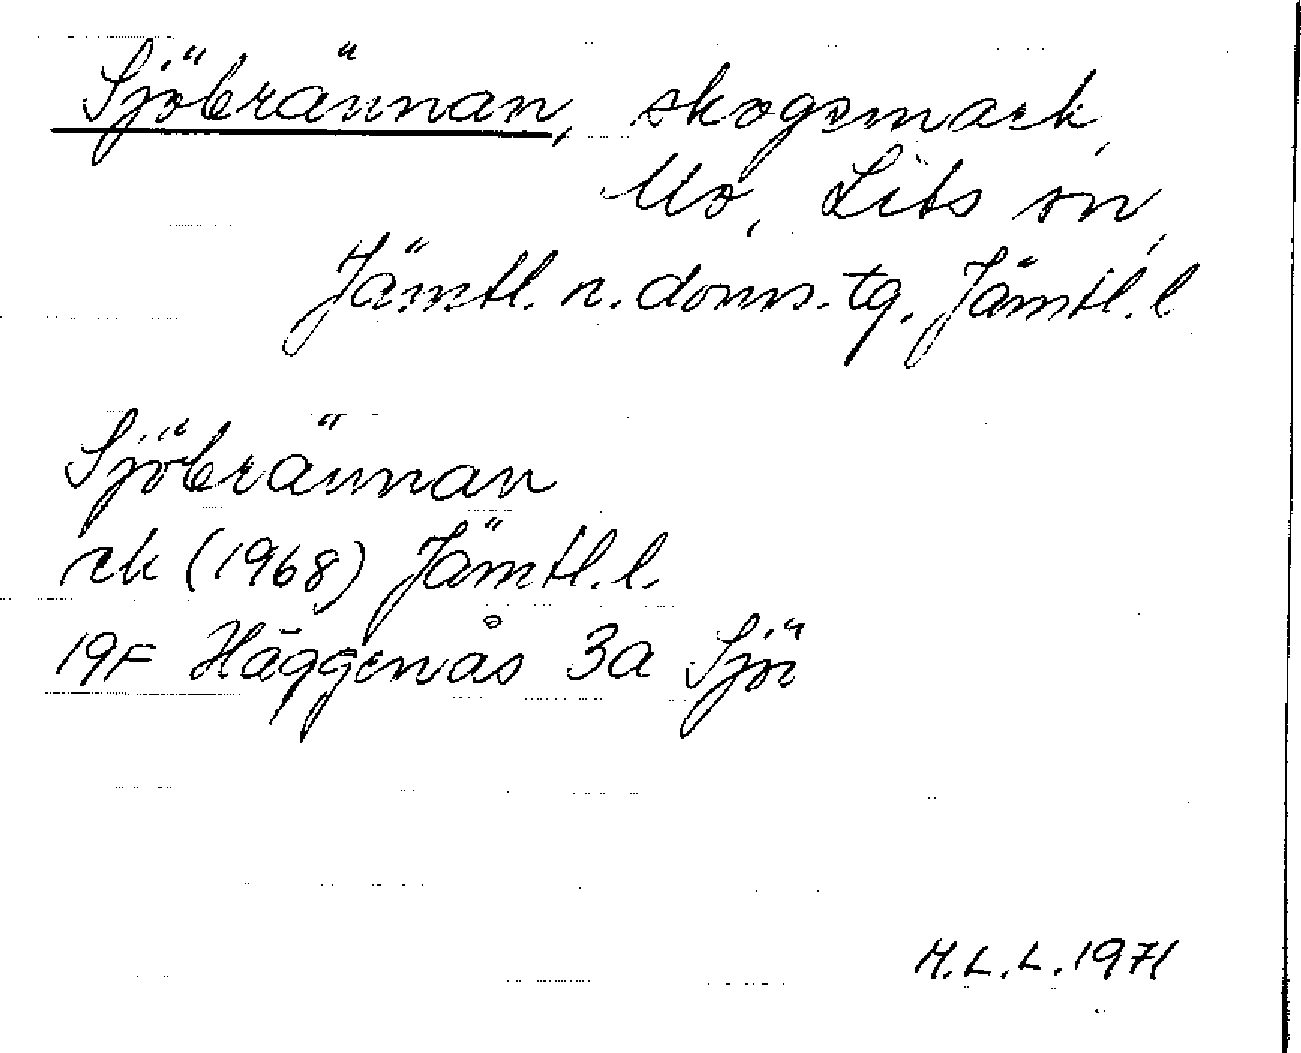 Sjöbrännan, skogsmark,
Mo, Lits sn,
Jämtl. n. doms. tg. Jämtl. l
Sjöbrännan
rk (1968) Jämtl. l.
19F Häggenås 3a Sjö
H.L.L. 1971